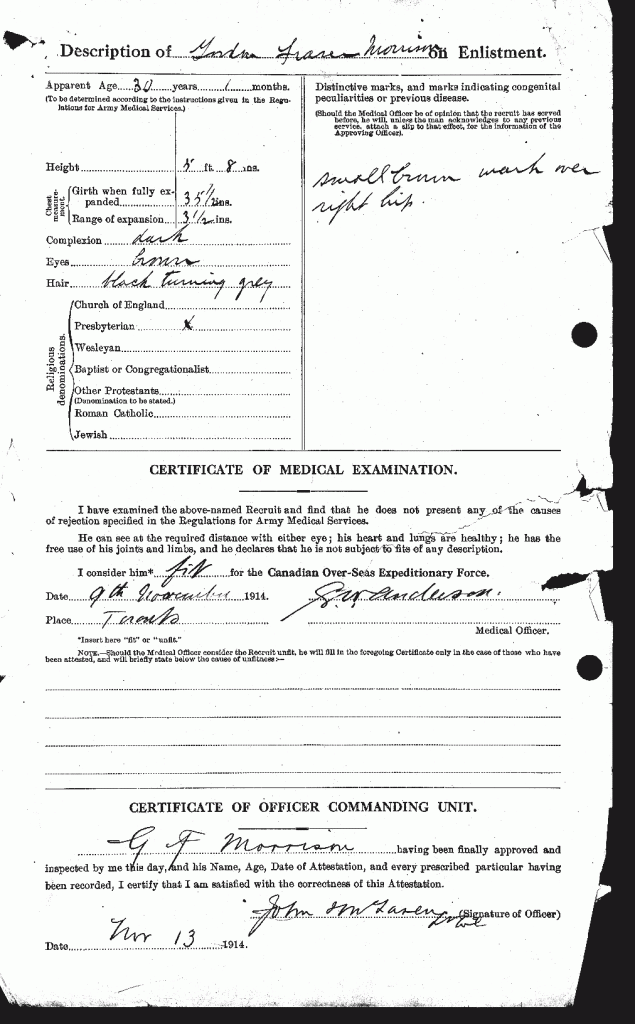 Description of Gordon Fraser Morrison on Enlistment.
Apparent Age 30 years 1 months.
(To be determined according to the instructions given in the Regu-
lations for Army Medical Services.)
Height 5 ft. 8 ins.
Chest measure-
ment.
Girth when fully ex-
panded 35 1/2 ins.
Range of expansion 3 1/2 ins.
Complexion dark
Eyes brown
Hair black turning grey
Religious denominations.
Church of England
Presbyterian x
Wesleyan
Baptist or Congregationalist
Other Protestants
(Denomination to be stated.)
Roman Catholic
Jewish
Distinctive marks, and marks indicating congenital
peculiarities or previous disease.
(Should the Medical Officer be of opinion that the recruit has served
before, he will, unless the man acknowledges to any previous
service, attach a slip to that effect, for the information of the
Approving Officer).
small brown mark over
right hip.
CERTIFICATE OF MEDICAL EXAMINATION.
I have examined the above-named Recruit and find that he does not present any of the causes
of rejection specified in the Regulations for Army Medical Services.
He can see at the required distance with either eye; his heart and lungs are healthy; he has the
free use of his joints and limbs, and he declares that he is not subject to fits of any description.
I consider him* fit for the Canadian Over-Seas Expeditionary Force.
Date 9th November 1914.
Place Toronto
Anderson.
Medical Officer.
*Insert here "fit" or "unfit."
NOTE.—Should the Medical Officer consider the Recruit unfit, he will fill in the foregoing Certificate only in the case of those who have
been attested, and will briefly state below the cause of unfitness:—
CERTIFICATE OF OFFICER COMMANDING UNIT.
G F Morrison having been finally approved and
inspected by me this day, and his Name, Age, Date of Attestation, and every prescribed particular having
been recorded, I certify that I am satisfied with the correctness of this Attestation.
John McLaren (Signature of Officer)
Date Nov 13 1914.